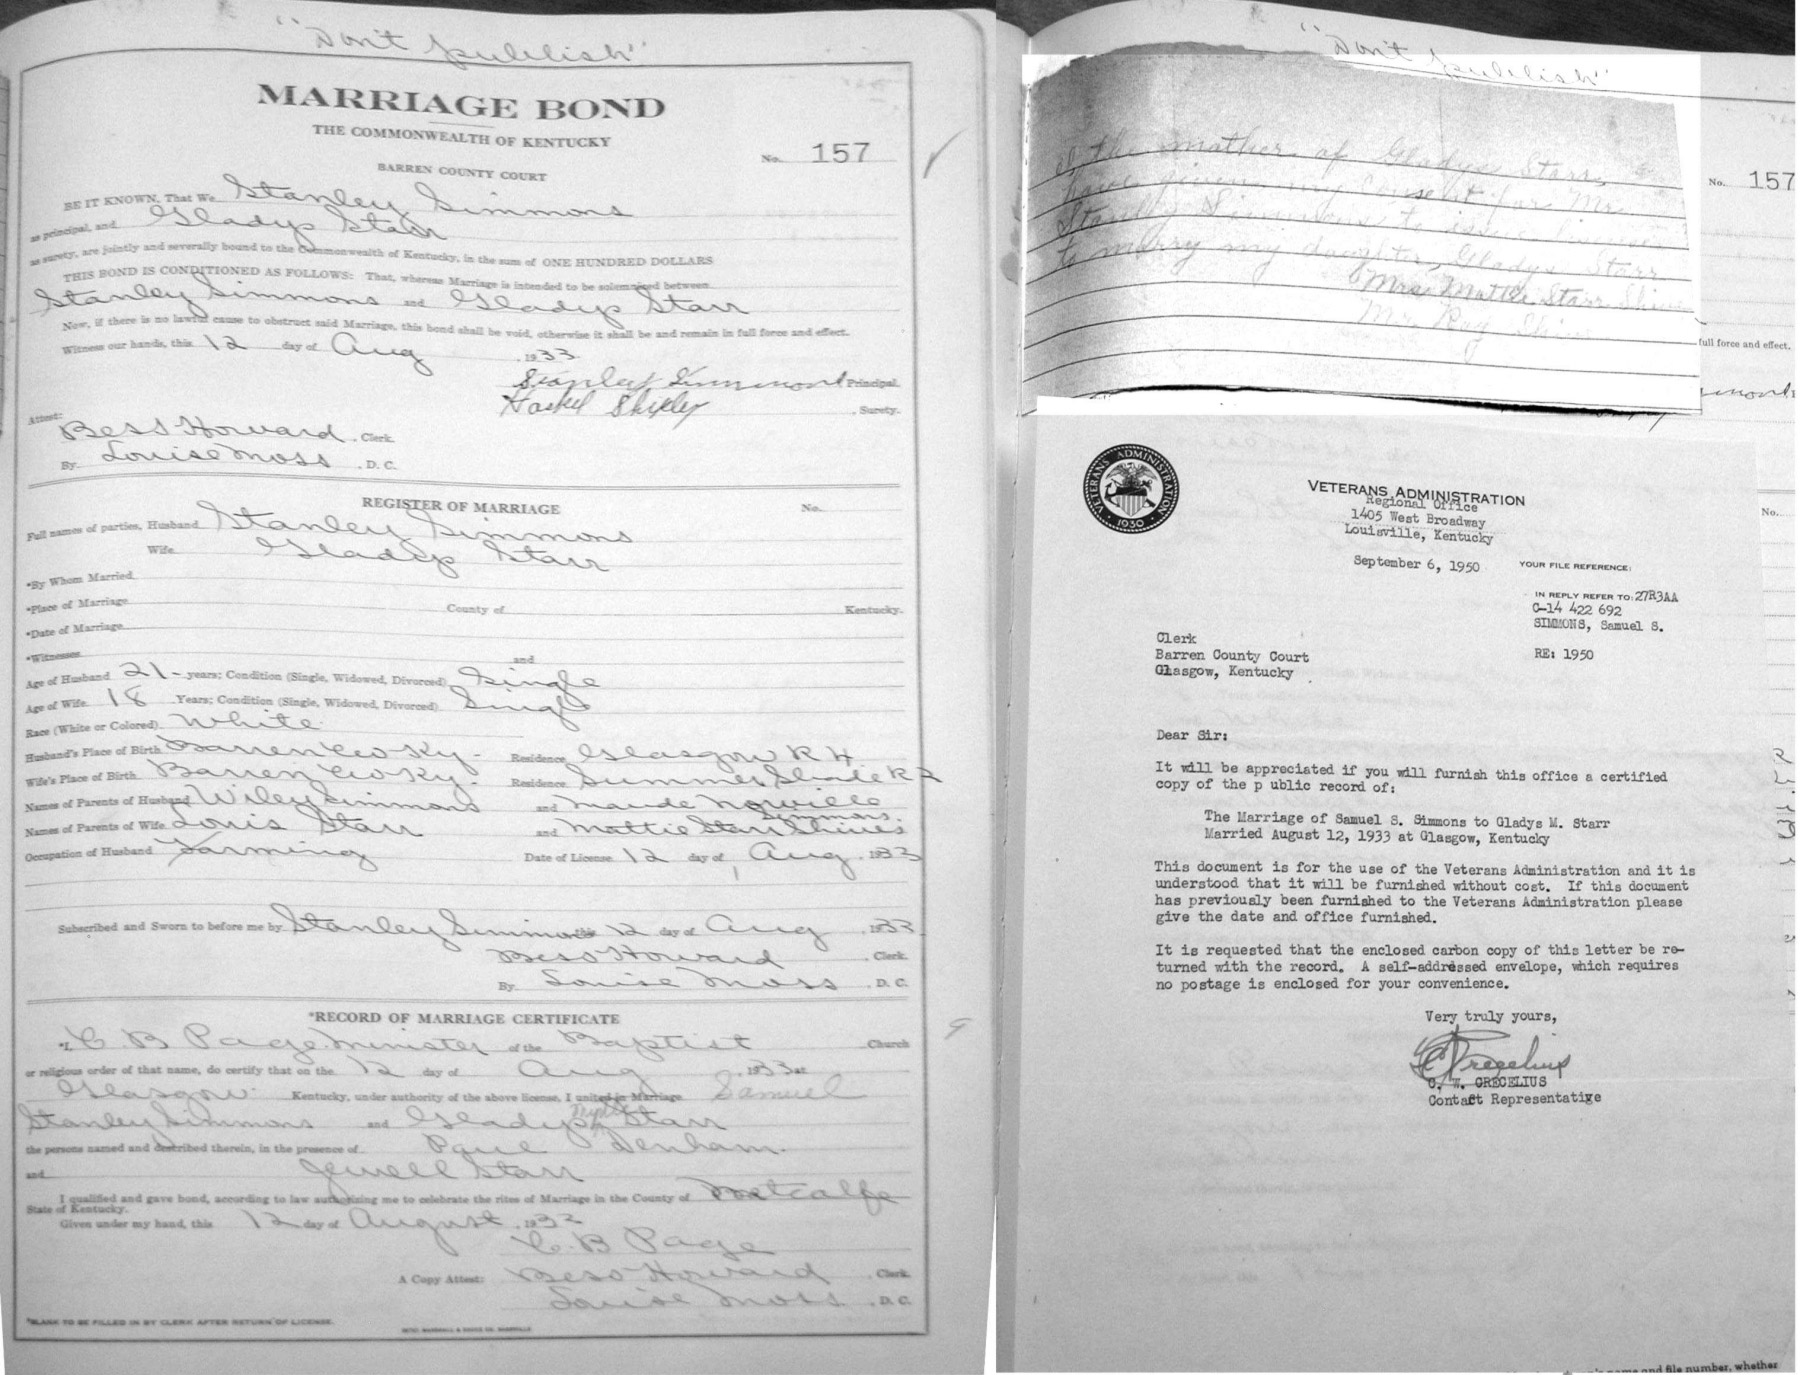 "Don't publish"
MARRIAGE BOND
THE COMMONWEALTH OF KENTUCKY
No. 157
BARREN COUNTY COURT
BE IT KNOWN, That We Stanley Simmons
as principal, and Gladys Starr
as surety, are jointly and severally bound to the Commonwealth of Kentucky, in the sum of ONE HUNDRED DOLLARS
THIS BOND IS CONDITIONED AS FOLLOWS: That, whereas Marriage is intended to be solemnized between
Stanley Simmons and Gladys Starr
Now, if there is no lawful cause to obstruct said Marriage, this bond shall be void, otherwise it shall be and remain in full force and effect.
Witness our hands, this 12 day of Aug , 1933
Stanley Simmons Principal.
Haskel Shirley , Surety.
Attest:
Bess Howard , Clerk.
By Louise Moss , D. C.
REGISTER OF MARRIAGE No.
Full names of parties, Husband Stanley Simmons
Wife Gladys Starr
*By Whom Married
*Place of Marriage County of Kentucky.
*Date of Marriage
*Witnesses and
Age of Husband 21 - years; Condition (Single, Widowed, Divorced) Single
Age of Wife 18 Years; Condition (Single, Widowed, Divorced) Single
Race (White or Colored) White
Husband's Place of Birth Barren Co Ky - Residence Glasgow R 4
Wife's Place of Birth Barren Co Ky. Residence Summer Shade R 2
Names of Parents of Husband Wiley Simmons and Maude Norville Simmons.
Names of Parents of Wife Louis Starr and Mattie Starr Shives
Occupation of Husband Farming Date of License 12 day of Aug , 1933
Subscribed and Sworn to before me by Stanley Simmons this 12 day of Aug , 1933
Bess Howard , Clerk.
By Louise Moss , D. C.
*RECORD OF MARRIAGE CERTIFICATE
*I, C. B Page Minister of the Baptist Church
or religious order of that name, do certify that on the 12 day of Aug , 1933 at
Glasgow Kentucky, under authority of the above license, I united in Marriage Samuel
Stanley Simmons and Gladys Starr
the persons named and described therein, in the presence of Paul Denham.
and Jewell Starr
I qualified and gave bond, according to law authorizing me to celebrate the rites of Marriage in the County of Metcalfe
State of Kentucky.
Given under my hand, this 12 day of August , 1933
C. B Page
A Copy Attest: Bess Howard , Clerk.
Louise Moss , D. C.
*BLANK TO BE FILLED IN BY CLERK AFTER RETURN OF LICENSE.
"Don't publish"
I the mother of Gladys Starr,
have given my consent for Mr.
Stanley Simmons to issue license
to marry my daughter, Gladys Starr
Mrs Mattie Starr Shive
Mr. Ray Shive
No. 157
full force and effect.
No.
VETERANS ADMINISTRATION
1930
VETERANS ADMINISTRATION
Regional Office
1405 West Broadway
Louisville, Kentucky
September 6, 1950
YOUR FILE REFERENCE:
IN REPLY REFER TO: 27R3AA
C-14 422 692
SIMMONS, Samuel S.
Clerk
Barren County Court
Glasgow, Kentucky
RE: 1950
Dear Sir:
It will be appreciated if you will furnish this office a certified
copy of the p ublic record of:
The Marriage of Samuel S. Simmons to Gladys M. Starr
Married August 12, 1933 at Glasgow, Kentucky
This document is for the use of the Veterans Administration and it is
understood that it will be furnished without cost. If this document
has previously been furnished to the Veterans Administration please
give the date and office furnished.
It is requested that the enclosed carbon copy of this letter be re-
turned with the record. A self-addressed envelope, which requires
no postage is enclosed for your convenience.
Very truly yours,
O. W. GRECELIUS
Contact Representative
name and file number, whether